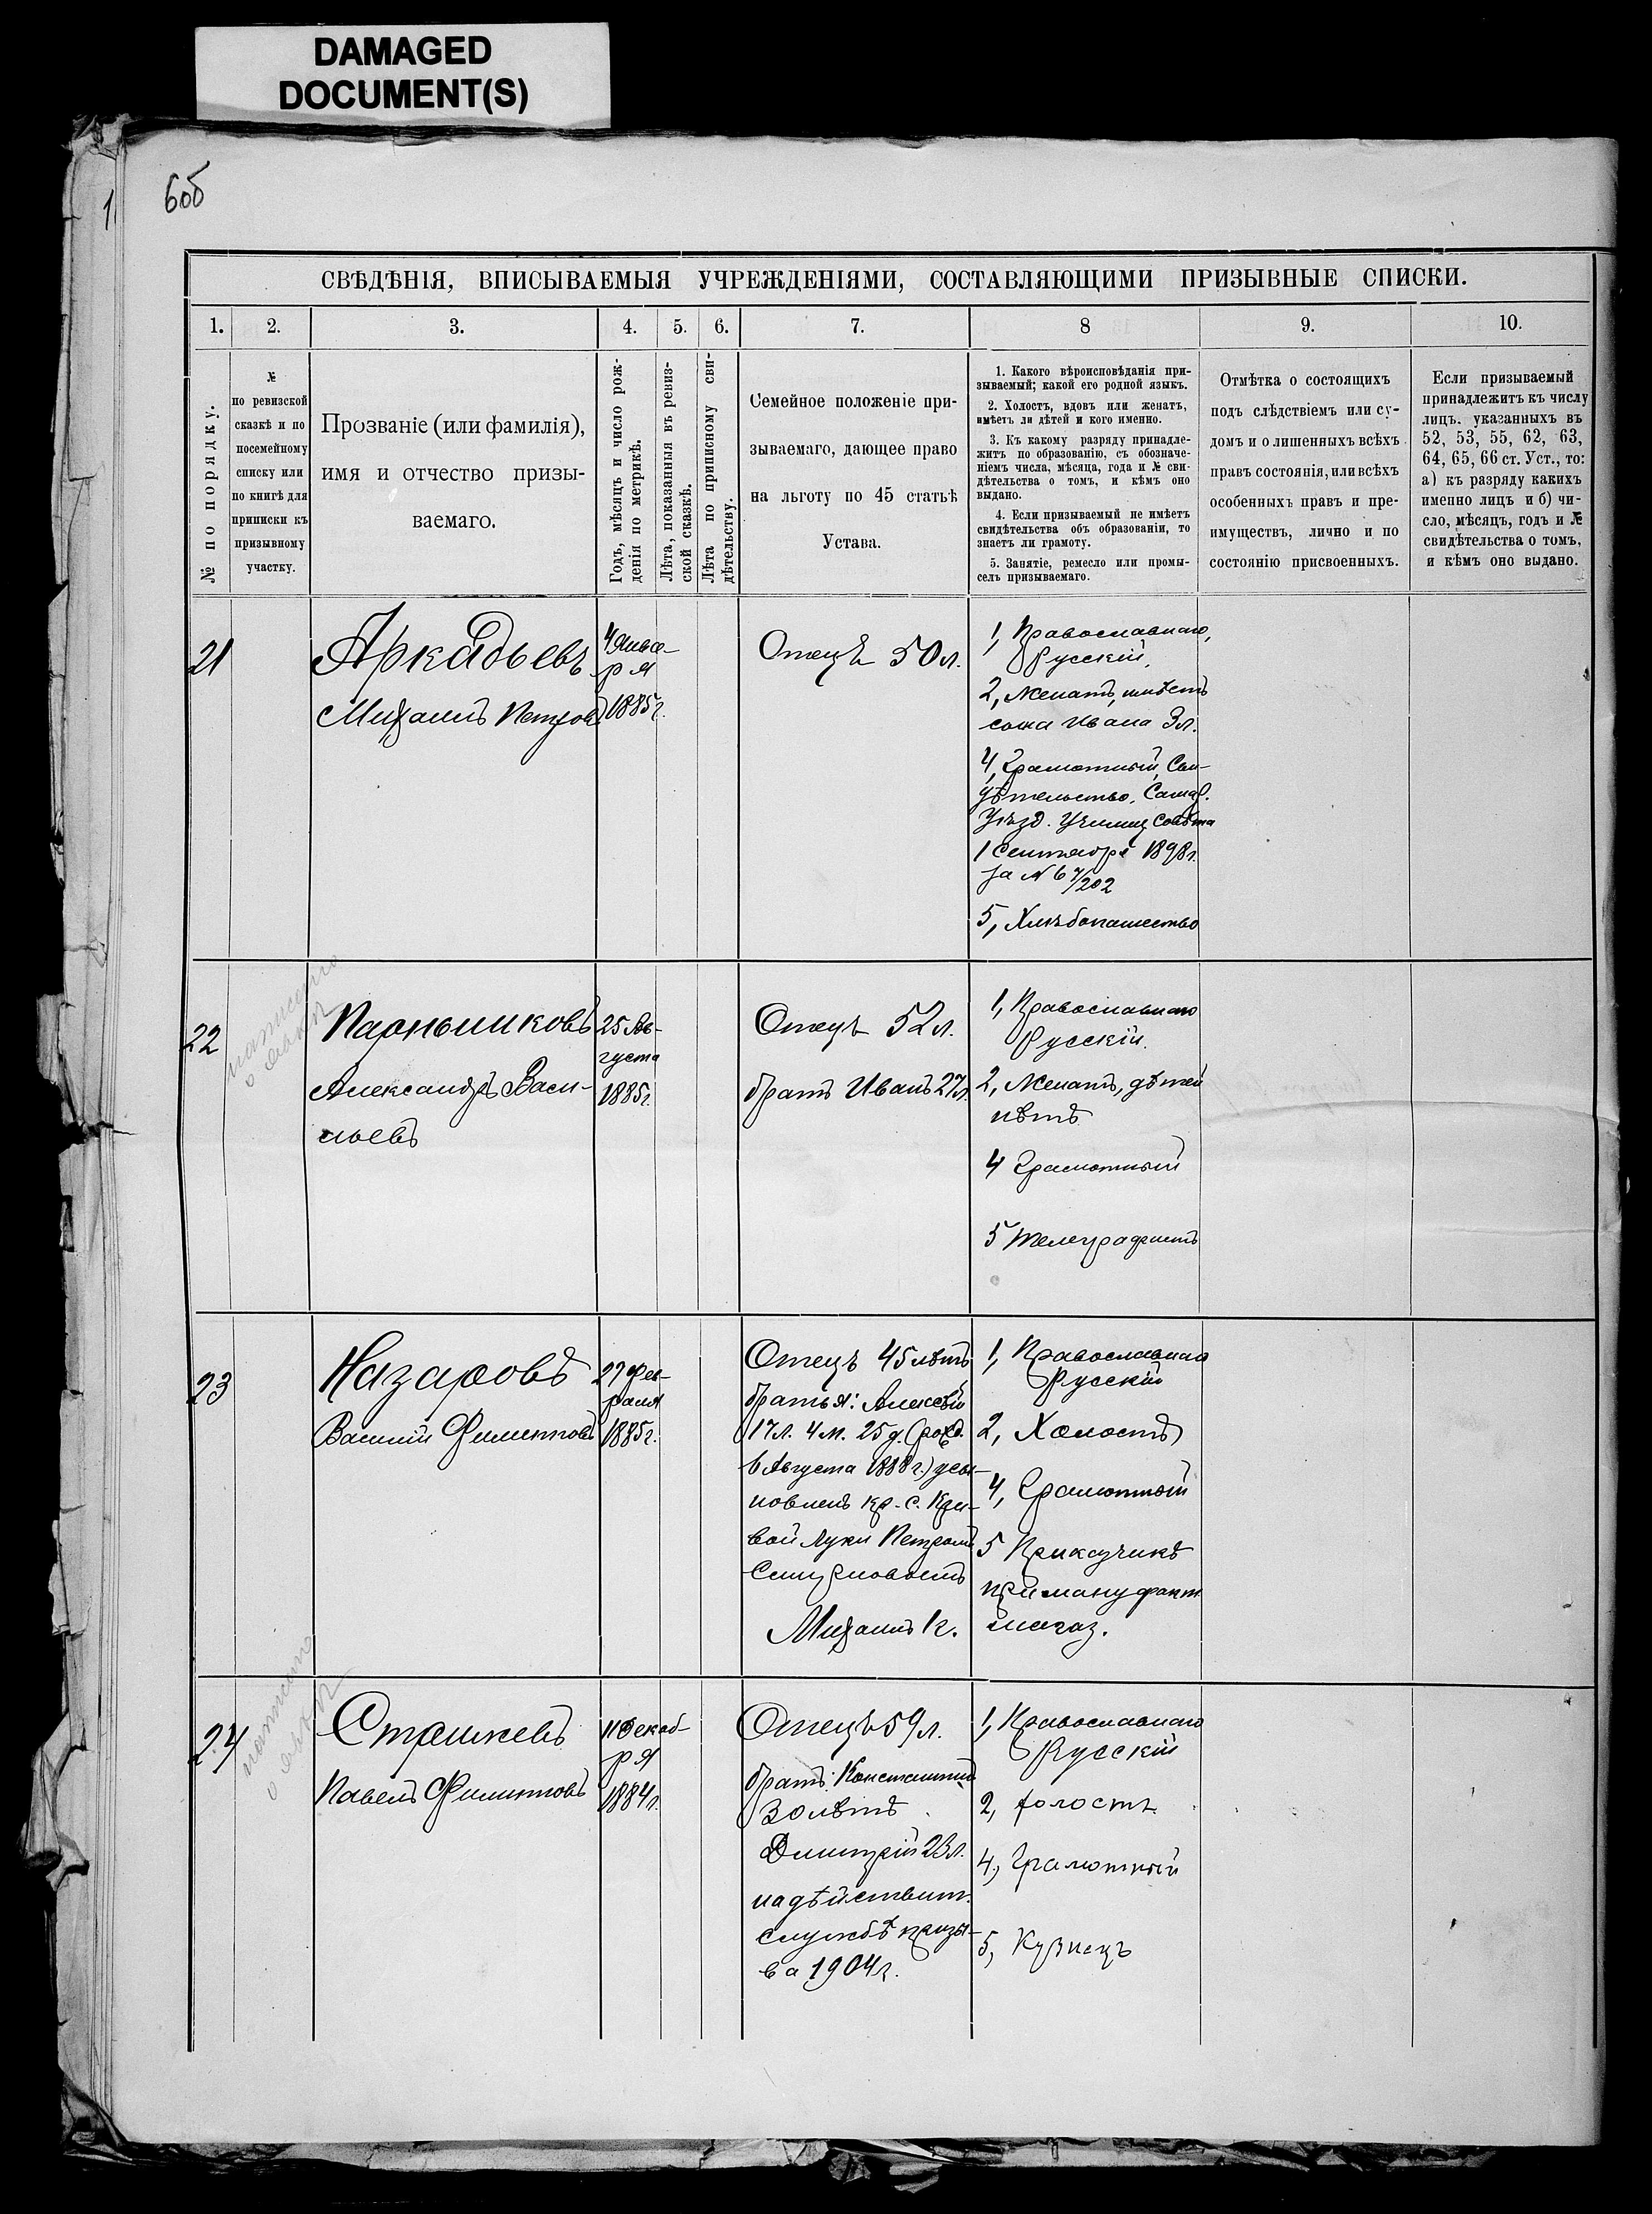 DAMAGED
DOCUMENT(S)
1
6об
СВѢДѢНІЯ, ВПИСЫВАЕМЫЯ УЧРЕЖДЕНІЯМИ, СОСТАВЛЯЮЩИМИ ПРИЗЫВНЫЕ СПИСКИ.
1. 2. 3. 4. 5. 6. 7. 8 9. 10.
№ по порядку.
№
по ревизской
сказкѣ и по
посемейному
списку или
по книгѣ для
приписки къ
призывному
участку.
Прозваніе (или фамилія),
имя и отчество призы-
ваемаго.
Годъ, мѣсяцъ и число рож-
денія по метрикѣ.
Лѣта, показанныя въ ревиз-
ской сказкѣ.
Лѣта по приписному сви-
дѣтельству.
Семейное положеніе при-
зываемаго, дающее право
на льготу по 45 статьѣ
Устава.
1. Какого вѣроисповѣданія при-
зываемый; какой его родной языкъ.
2. Холостъ, вдовъ или женатъ,
имѣетъ ли дѣтей и кого именно.
3. Къ какому разряду принадле-
житъ по образованію, съ обозначе-
ніемъ числа, мѣсяца, года и № сви-
дѣтельства о томъ, и кѣмъ оно
выдано.
4. Если призываемый не имѣетъ
свидѣтельства объ образованіи, то
знаетъ ли грамоту.
5. Занятіе, ремесло или промы-
селъ призываемаго.
Отмѣтка о состоящихъ
подъ слѣдствіемъ или су-
домъ и о лишенныхъ всѣхъ
правъ состоянія, или всѣхъ
особенныхъ правъ и пре-
имуществъ, лично и по
состоянію присвоенныхъ.
Если призываемый
принадлежитъ къ числу
лицъ. указанныхъ въ
52, 53, 55, 62, 63,
64, 65, 66 ст. Уст., то:
а) къ разряду какихъ
именно лицъ и б) чи-
сло, мѣсяцъ, годъ и №
свидѣтельства о томъ,
и кѣмъ оно выдано.
21
Аркадьевъ
Михаилъ Петровъ
4 Янва-
ря
1885 г.
Отецъ 50 л.
1, Православнаго,
Русскій.
2, Женатъ, имѣетъ
сына Ивана 3 л.
4, Грамотный, Сви-
дѣтельство. Самар.
Уѣзд. Училищ Совѣта
1 Сентября 1898 г.
за №
5, Хлѣбопашество
22
Парньшиковъ
Александръ Васи-
льевъ
25 Ав-
густа
1885 г.
Отецъ 52 л.
братъ Иванъ 27 л.
1, Православнаго
Русскій.
2, Женатъ, дѣтей
нѣтъ
4 Грамотный
5 Телеграфистъ
23
Назаровъ
Василій Филипповъ
27 фев-
раля
1885 г.
Отецъ 45 лѣтъ
братья: Алексѣй
17 л. 4 м. 25 д. (рожд.
6 Августа 1888 г.) усы-
новленъ кр. с. Кри-
вой Луки Петромъ
Смирновымъ
Михаилъ 1 г.
1, Православнаго
Русскій
2, Холостъ
4, Грамотный
5 Приказчикъ
при мануфакт.
магаз.
24
Сташкевъ
Павелъ Филипповъ
11 декаб-
ря
1884 г.
Отецъ 59 л.
братъ: Константинъ
30 лѣтъ
Дмитрій 23 л.
на дѣйствит.
службѣ призы-
ва 1904 г.
1, Православнаго
Русскій
2, холостъ
4, Грамотный
5, Кузнецъ